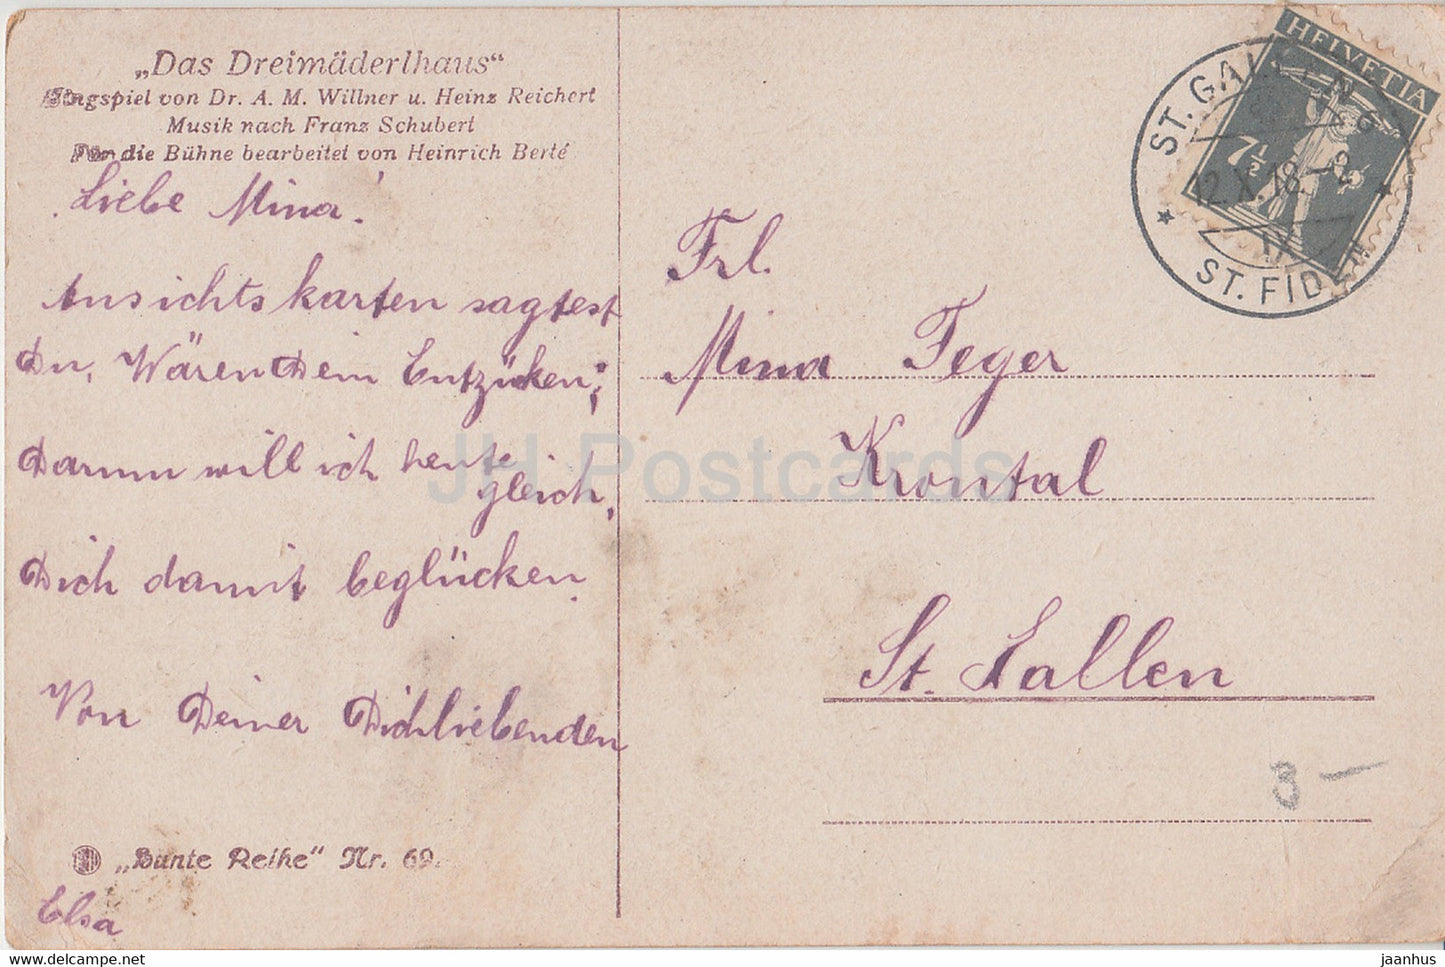 „Das Dreimäderlhaus“
Singspiel von Dr. A. M. Willner u. Heinz Reichert
Musik nach Franz Schubert
Für die Bühne bearbeitet von Heinrich Berté
Liebe Mina!
Ansichtskarten sagtest
Du, Wären Dein Entzüken;
Darum will ich heute
gleich,
Dich damit beglücken.
Von Deiner Dichliebenden
„Bunte Reihe“ Nr. 69.
Elsa
HELVETIA
7½
ST. GALLEN
12.X.18.
IX
ST. FIDEN
Frl.
Mina Feger
Krontal
St. Gallen
3 —
JH Postcards
jaanhus © www.delcampe.net